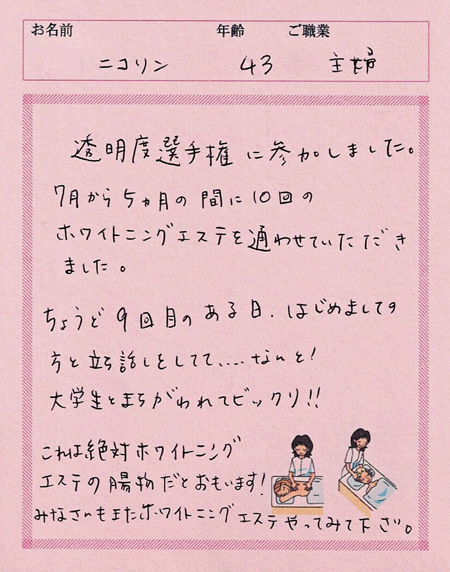 お名前 年齢 ご職業
ニコリン 43 主婦
透明度選手権に参加しました。
7月から5ヵ月の間に10回の
ホワイトニングエステを通わせていただき
ました。
ちょうど9回目のある日、はじめましての
方と立ち話しをしてて、....なんと!
大学生とまちがわれてビックリ!!
これは絶対ホワイトニング
エステの腸物だとおもいます!
みなさいもまたホワイトニングエステやってみて下さい。